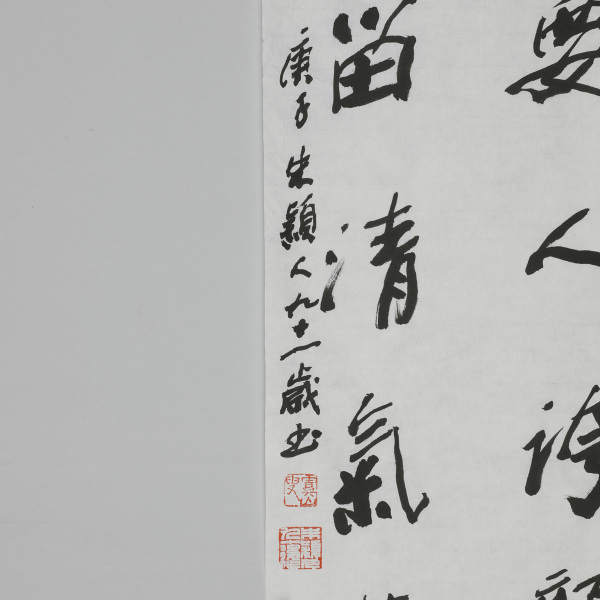 要人誇顏
留清氣
庚子朱穎人九十一歲書